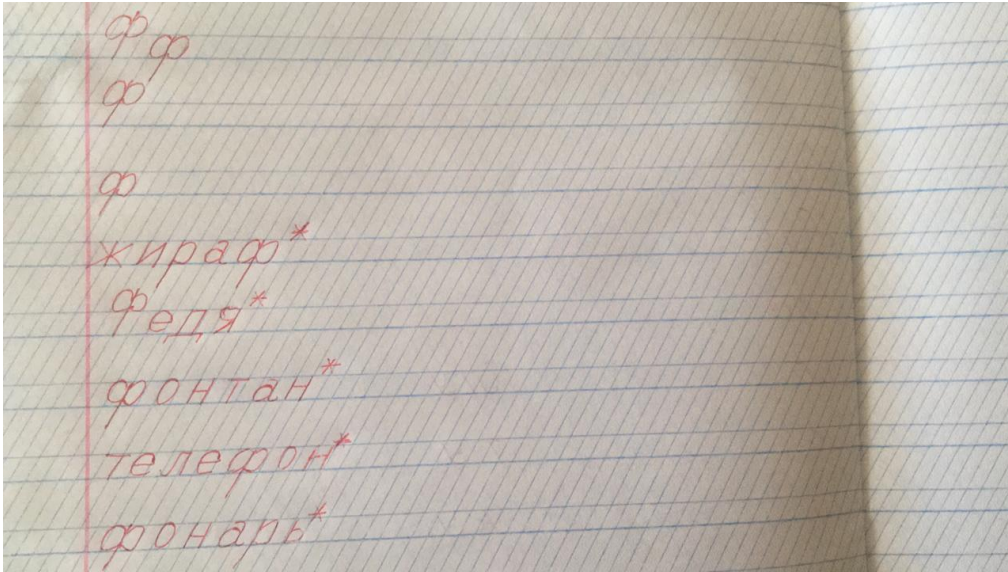 Ф ф
ф
ф
жираф*
Федя*
фонтан*
телефон*
фонарь*